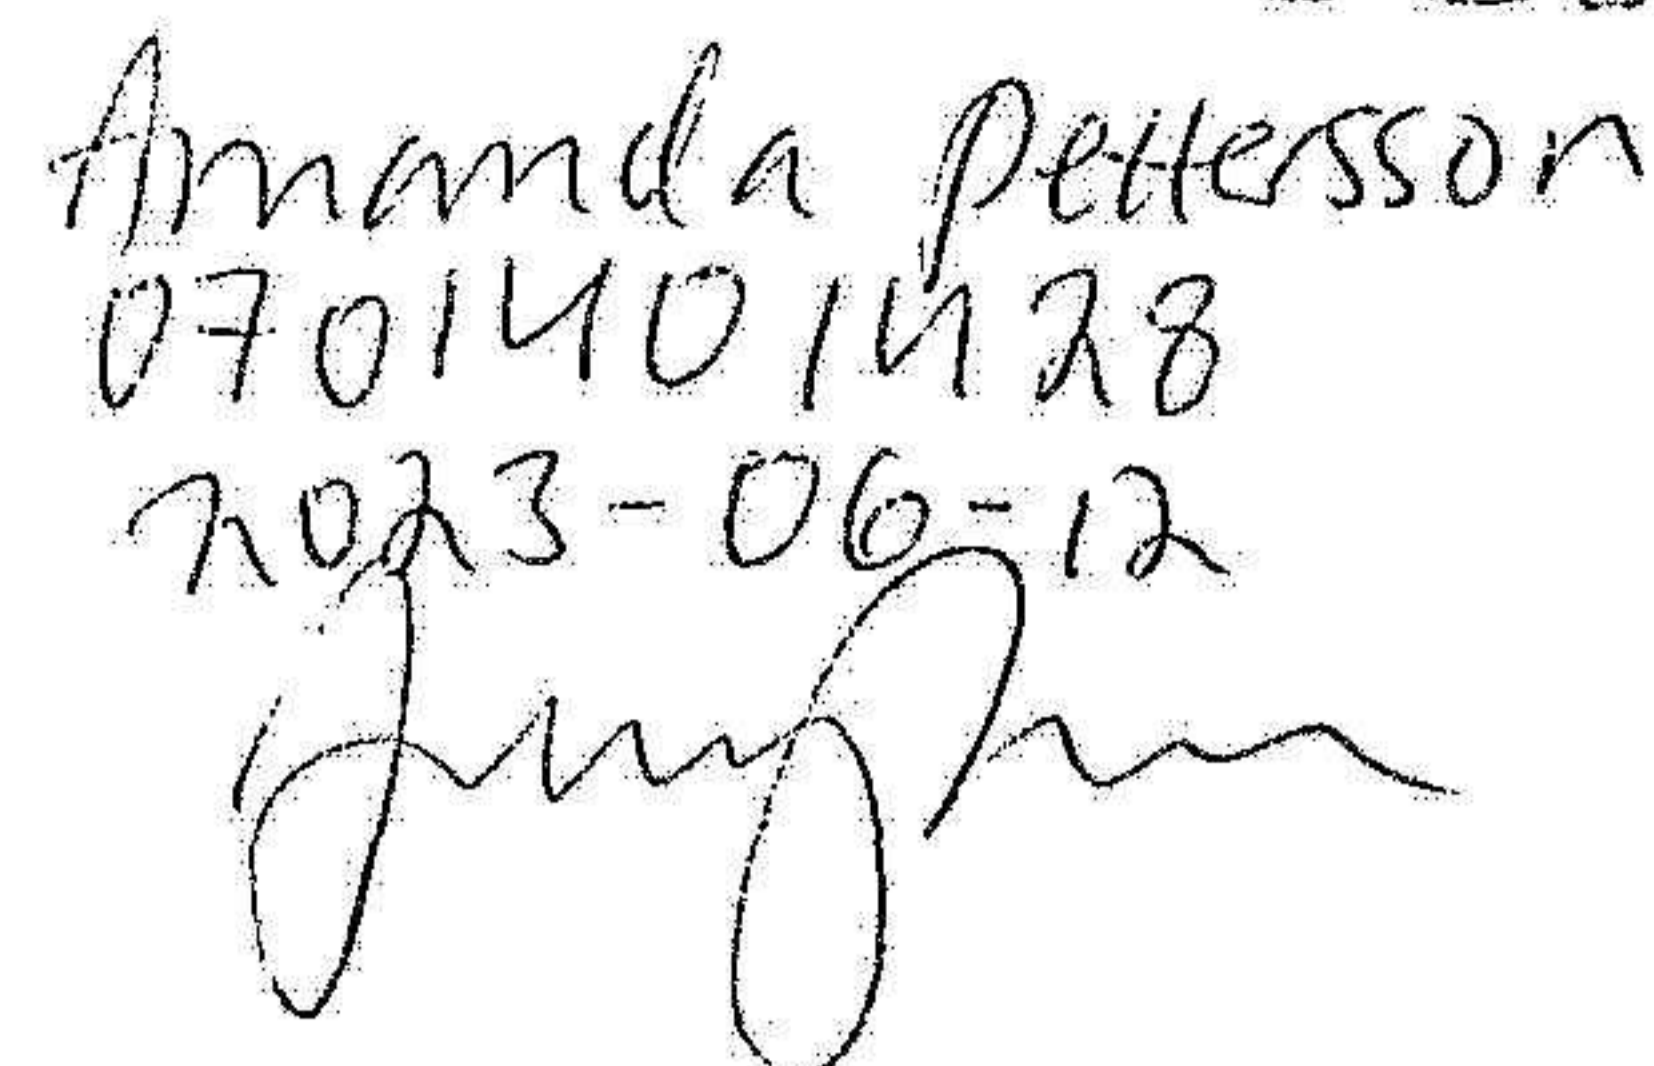 Amanda Pettersson
0701401428
2023-06-12